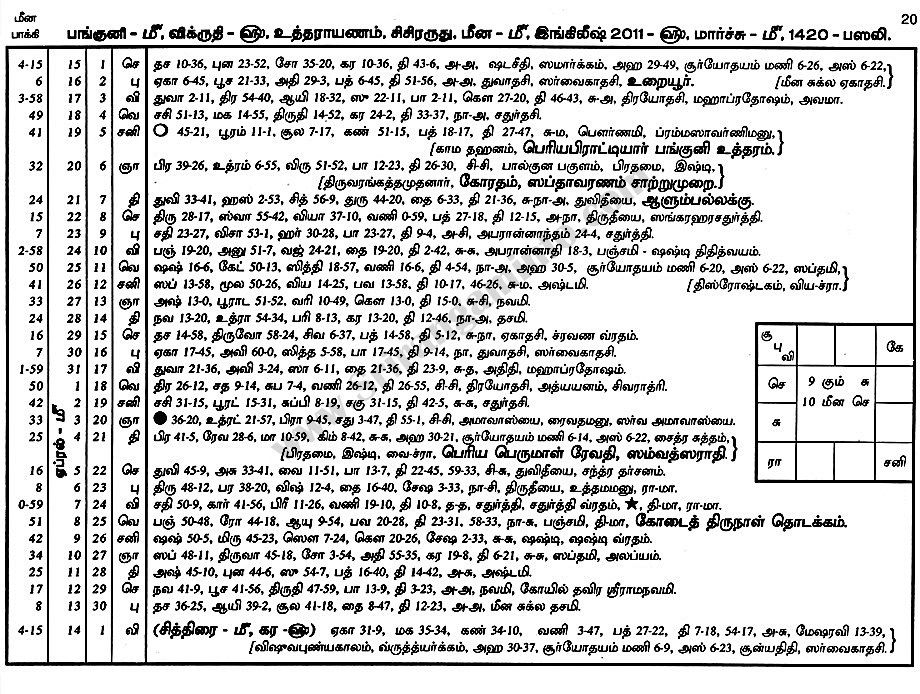 மீன
பாக்கி
20
பங்குனி - மீ, விக்ருதி - ௵, உத்தராயணம், சிசிரருது, மீன - மீ, இங்கிலீஷ் 2011 - ௵, மார்ச்சு - மீ, 1420 - பஸலி.
4-15 15 1 செ தச 10-36, புன 23-52, சோ 35-20, கர 10-36, தி 43-6, அ-அ, ஷடசீதி, ஸமார்க்கம், அஹ 29-49, சூர்யோதயம் மணி 6-26, அஸ் 6-22,
6 16 2 பு ஏகா 6-45, பூச 21-33, அதி 29-3, பத் 6-45, தி 51-56, அ-அ, துவாதசி, ஸர்வைகாதசி, உறையூர். [மீன சுக்ல ஏகாதசி.]
3-58 17 3 வி துவா 2-11, திர 54-40, ஆயி 18-32, ஸு 22-11, பா 2-11, கௌ 27-20, தி 46-43, சு-அ, திரயோதசி, மஹாப்ரதோஷம், அவமா.
49 18 4 வெ சசி 51-13, மக 14-55, திருதி 14-52, கர 24-2, தி 33-37, நா-அ, சதுர்தசி.
41 19 5 சனி ○ 45-21, பூரம் 11-1, சூல 7-17, கண் 51-15, பத் 18-17, தி 27-47, சு-ம, பௌர்ணமி, ப்ரம்மஸாவர்ணிமனு,
[காம தஹனம், பெரியபிராட்டியார் பங்குனி உத்தரம்.]
32 20 6 ஞா பிர 39-26, உத்ரம் 6-55, விரு 51-52, பா 12-23, தி 26-30, சி-சி, பால்குன பகுளம், பிரதமை, இஷ்டி,
[திருவரங்கத்தமுதனார், கோரதம், ஸப்தாவரணம் சாற்றுமுறை.]
24 21 7 தி துவி 33-41, ஹஸ் 2-53, சித் 56-9, துரு 44-20, தை 6-33, தி 21-36, சு-நா-அ, துவிதீயை, ஆளும்பல்லக்கு.
15 22 8 செ திரு 28-17, ஸ்வா 55-42, வியா 37-10, வணி 0-59, பத் 27-18, தி 12-15, அ-நா, திருதீயை, ஸங்கரஹரசதுர்த்தி.
7 23 9 பு சதி 23-27, விசா 53-1, ஹர் 30-28, பா 23-27, தி 9-4, அ-சி, அபரான்னாந்தம் 24-4, சதுர்த்தி.
2-58 24 10 வி பஞ் 19-20, அனு 51-7, வஜ் 24-21, தை 19-20, தி 2-42, சு-சு, அபரான்னாதி 18-3, பஞ்சமி - ஷஷ்டி திதித்வயம்.
50 25 11 வெ ஷஷ் 16-6, கேட் 50-13, ஸித்தி 18-57, வணி 16-6, தி 4-54, நா-அ, அஹ 30-5, சூர்யோதயம் மணி 6-20, அஸ் 6-22, ஸப்தமி,
41 26 12 சனி ஸப் 13-58, மூல 50-26, விய 14-25, பவ 13-58, தி 10-17, 46-26, சு-ம, அஷ்டமி. [திஸ்ரோஷ்டகம், விய-ச்ரா.]
33 27 13 ஞா அஷ் 13-0, பூராட 51-52, வரி 10-49, கௌ 13-0, தி 15-0, சு-சி, நவமி.
24 28 14 தி நவ 13-20, உத்ரா 54-34, பரி 8-13, கர 13-20, தி 12-46, நா-அ, தசமி.
16 29 15 செ தச 14-58, திருவோ 58-24, சிவ 6-37, பத் 14-58, தி 5-12, சு-நா, ஏகாதசி, ச்ரவண வ்ரதம்.
7 30 16 பு ஏகா 17-45, அவி 60-0, ஸித்த 5-58, பா 17-45, தி 9-14, நா, துவாதசி, ஸர்வைகாதசி.
1-59 31 17 வி துவா 21-36, அவி 3-24, ஸா 6-11, தை 21-36, தி 23-9, சு-த, அதிதி, மஹாப்ரதோஷம்.
50 1 18 வெ திர 26-12, சத 9-14, சுப 7-4, வணி 26-12, தி 26-55, சி-சி, திரயோதசி, அத்யயனம், சிவராத்ரி.
42 2 19 சனி சசி 31-15, பூரட் 15-31, சுப்பி 8-19, சகு 31-15, தி 42-5, சு-சு, சதுர்தசி.
ஏப்ரல் - மீ
33 3 20 ஞா ● 36-20, உத்ரட் 21-57, பிரா 9-45, சது 3-47, தி 55-1, சி-சி, அமாவாஸ்யை, ரைவதமனு, ஸர்வ அமாவாஸ்யை.
25 4 21 தி பிர 41-5, ரேவ 28-6, மா 10-59, கிம் 8-42, சு-சு, அஹ 30-21, சூர்யோதயம் மணி 6-14, அஸ் 6-22, சைத்ர சுத்தம்,
[பிரதமை, இஷ்டி, வை-ச்ரா, பெரிய பெருமாள் ரேவதி, ஸம்வத்ஸராதி.]
16 5 22 செ துவி 45-9, அசு 33-41, வை 11-51, பா 13-7, தி 22-45, 59-33, சி-சு, துவிதீயை, சந்த்ர தர்சனம்.
8 6 23 பு திரு 48-12, பர 38-20, விஷ் 12-4, தை 16-40, சேஷ 3-33, நா-சி, திருதீயை, உத்தமமனு, ரா-மா.
0-59 7 24 வி சதி 50-9, கார் 41-56, பிரீ 11-26, வணி 19-10, தி 10-8, த-த, சதுர்த்தி, சதுர்த்தி வ்ரதம், ★, தி-மா, ரா-மா.
51 8 25 வெ பஞ் 50-48, ரோ 44-18, ஆயு 9-54, பவ 20-28, தி 23-31, 58-33, நா-சு, பஞ்சமி, தி-மா, கோடைத் திருநாள் தொடக்கம்.
42 9 26 சனி ஷஷ் 50-5, மிரு 45-23, ஸௌ 7-24, கௌ 20-26, சேஷ 2-33, சு-சு, ஷஷ்டி, ஷஷ்டி வ்ரதம்.
34 10 27 ஞா ஸப் 48-11, திருவா 45-18, சோ 3-54, அதி 55-35, கர 19-8, தி 6-21, சு-சு, ஸப்தமி, அலப்யம்.
25 11 28 தி அஷ் 45-10, புன 44-6, ஸு 54-7, பத் 16-40, தி 14-42, அ-சு, அஷ்டமி.
17 12 29 செ நவ 41-9, பூச 41-56, திருதி 47-59, பா 13-9, தி 3-23, அ-அ, நவமி, கோயில் தவிர ஸ்ரீராமநவமி.
8 13 30 பு தச 36-25, ஆயி 39-2, சூல 41-18, தை 8-47, தி 12-23, அ-அ, மீன சுக்ல தசமி.
4-15 14 1 வி (சித்திரை - மீ, கர - ௵) ஏகா 31-9, மக 35-34, கண் 34-10, வணி 3-47, பத் 27-22, தி 7-18, 54-17, அ-சு, மேஷரவி 13-39,
[விஷுவபுண்யகாலம், வ்ருத்யர்க்கம், அஹ 30-37, சூர்யோதயம் மணி 6-9, அஸ் 6-23, சூன்யதிதி, ஸர்வைகாதசி.]
கு பு வி
கே
செ
சு
9 கும் சு
10 மீன செ
ரா
சனி